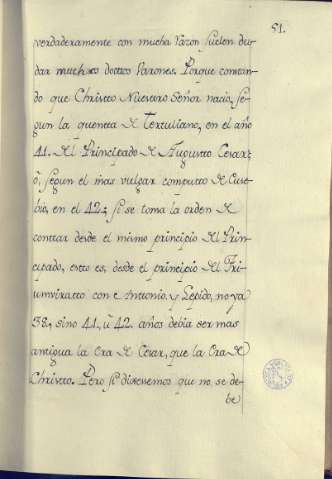 51.
verdaderamente con mucha razon suelen du-
dar muchos doctos Varones. Porque constan-
do que Christto Nuestro Señor nació, se-
gun la quenta de Tertuliano, en el año
41. del Principado de Augustto Cesar;
ò, segun el mas vulgar computto de Euse-
bio, en el 42; si se toma la orden de
conttar desde el mismo principio del Prin-
cipado, estto es, desde el principio del Tri-
umviratto con Antonio, y Lepido, no ya
38., sino 41. ù 42. años debia ser mas
antigua la Era de Cesar, que la Era de
Christto. Pero si dixeremos que no se de-
be